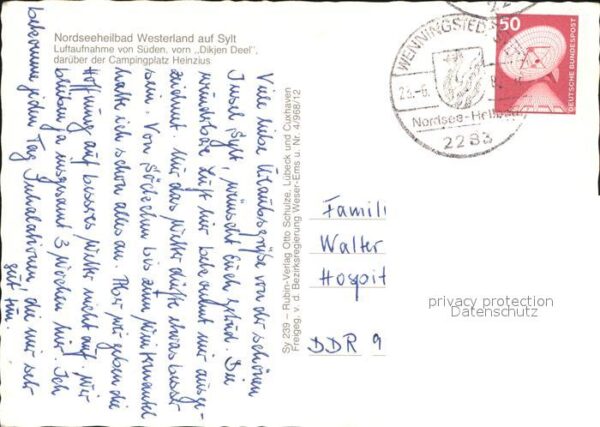 Nordseeheilbad Westerland auf Sylt
Luftaufnahme von Süden, vorn „Dikjen Deel",
darüber der Campingplatz Heinzius
Viele liebe Urlaubsgrüße von der schönen
Insel Sylt, wünscht Euch Die
wunderbare Luft hier bekommt mir ausge-
zeichnet. Nur das Wetter dürfte etwas besser
sein. Von Söckchen bis zum Wintermantel
hatte ich schon alles an. Aber wir geben die
Hoffnung auf besseres Wetter nicht auf. Wir
bleiben ja insgesamt 3 Wochen hier. Ich
bekomme jeden Tag Inhalationen, die mir sehr
gut tun.
Sy 239 – Rubin-Verlag Otto Schulze, Lübeck und Cuxhaven
Freigeg. v. d. Bezirksregierung Weser-Ems u. Nr. 4/968/12
WENNINGSTED
23.-6.
Nordsee-Heilbad
2283
50
DEUTSCHE BUNDESPOST
Famili
Walter
Hospit
DDR 9
privacy protection
Datenschutz